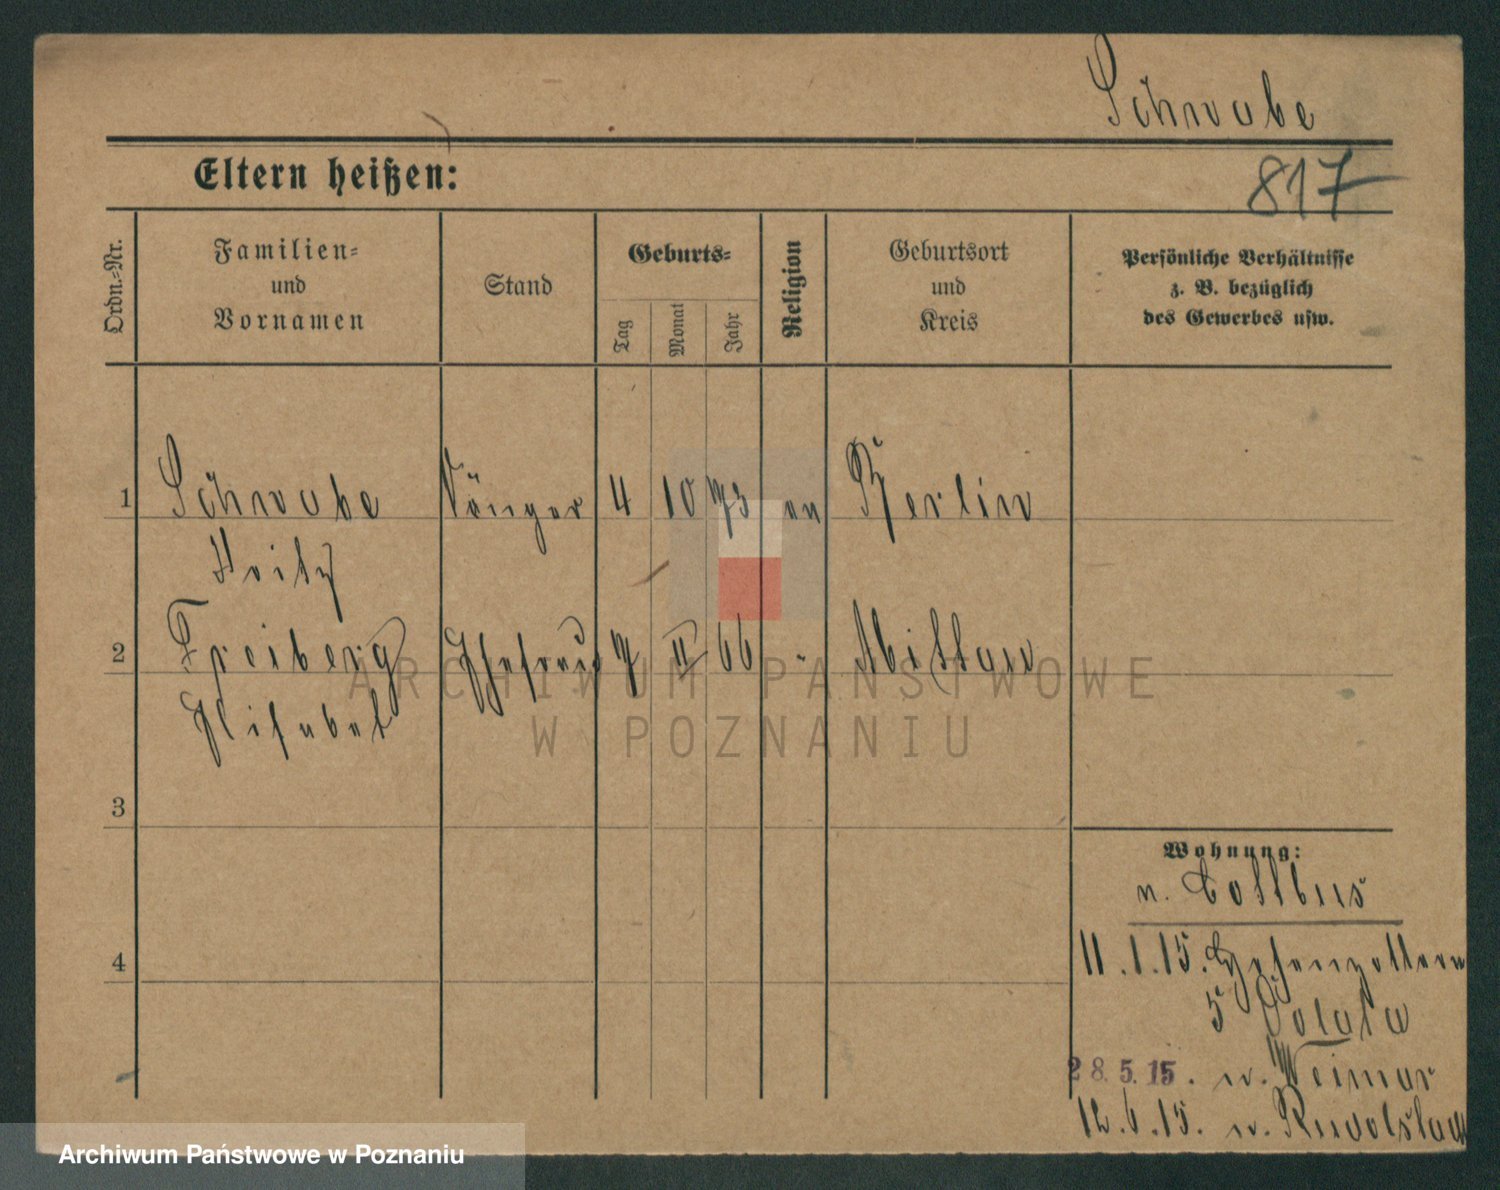 Schwabe
817
Eltern heißen:
Ordn.-Nr.
Familien-
und
Vornamen
Stand
Geburts-
Tag
Monat
Jahr
Religion
Geburtsort
und
Kreis
Persönliche Verhältnisse
z. B. bezüglich
des Gewerbes usw.
1 Schwabe Sänger 4 10 73 ev Berlin
Fritz
2 Freiberg Ehefrau 7 II 66 -
Elisabet
3
4
Wohnung:
n. Cottbus
11.1.15. Hohenzollern
5
28.5.15. n. Weimar
12.6.15. n. Rudolstadt
ARCHIWUM PAŃSTWOWE
W POZNANIU
Archiwum Państwowe w Poznaniu